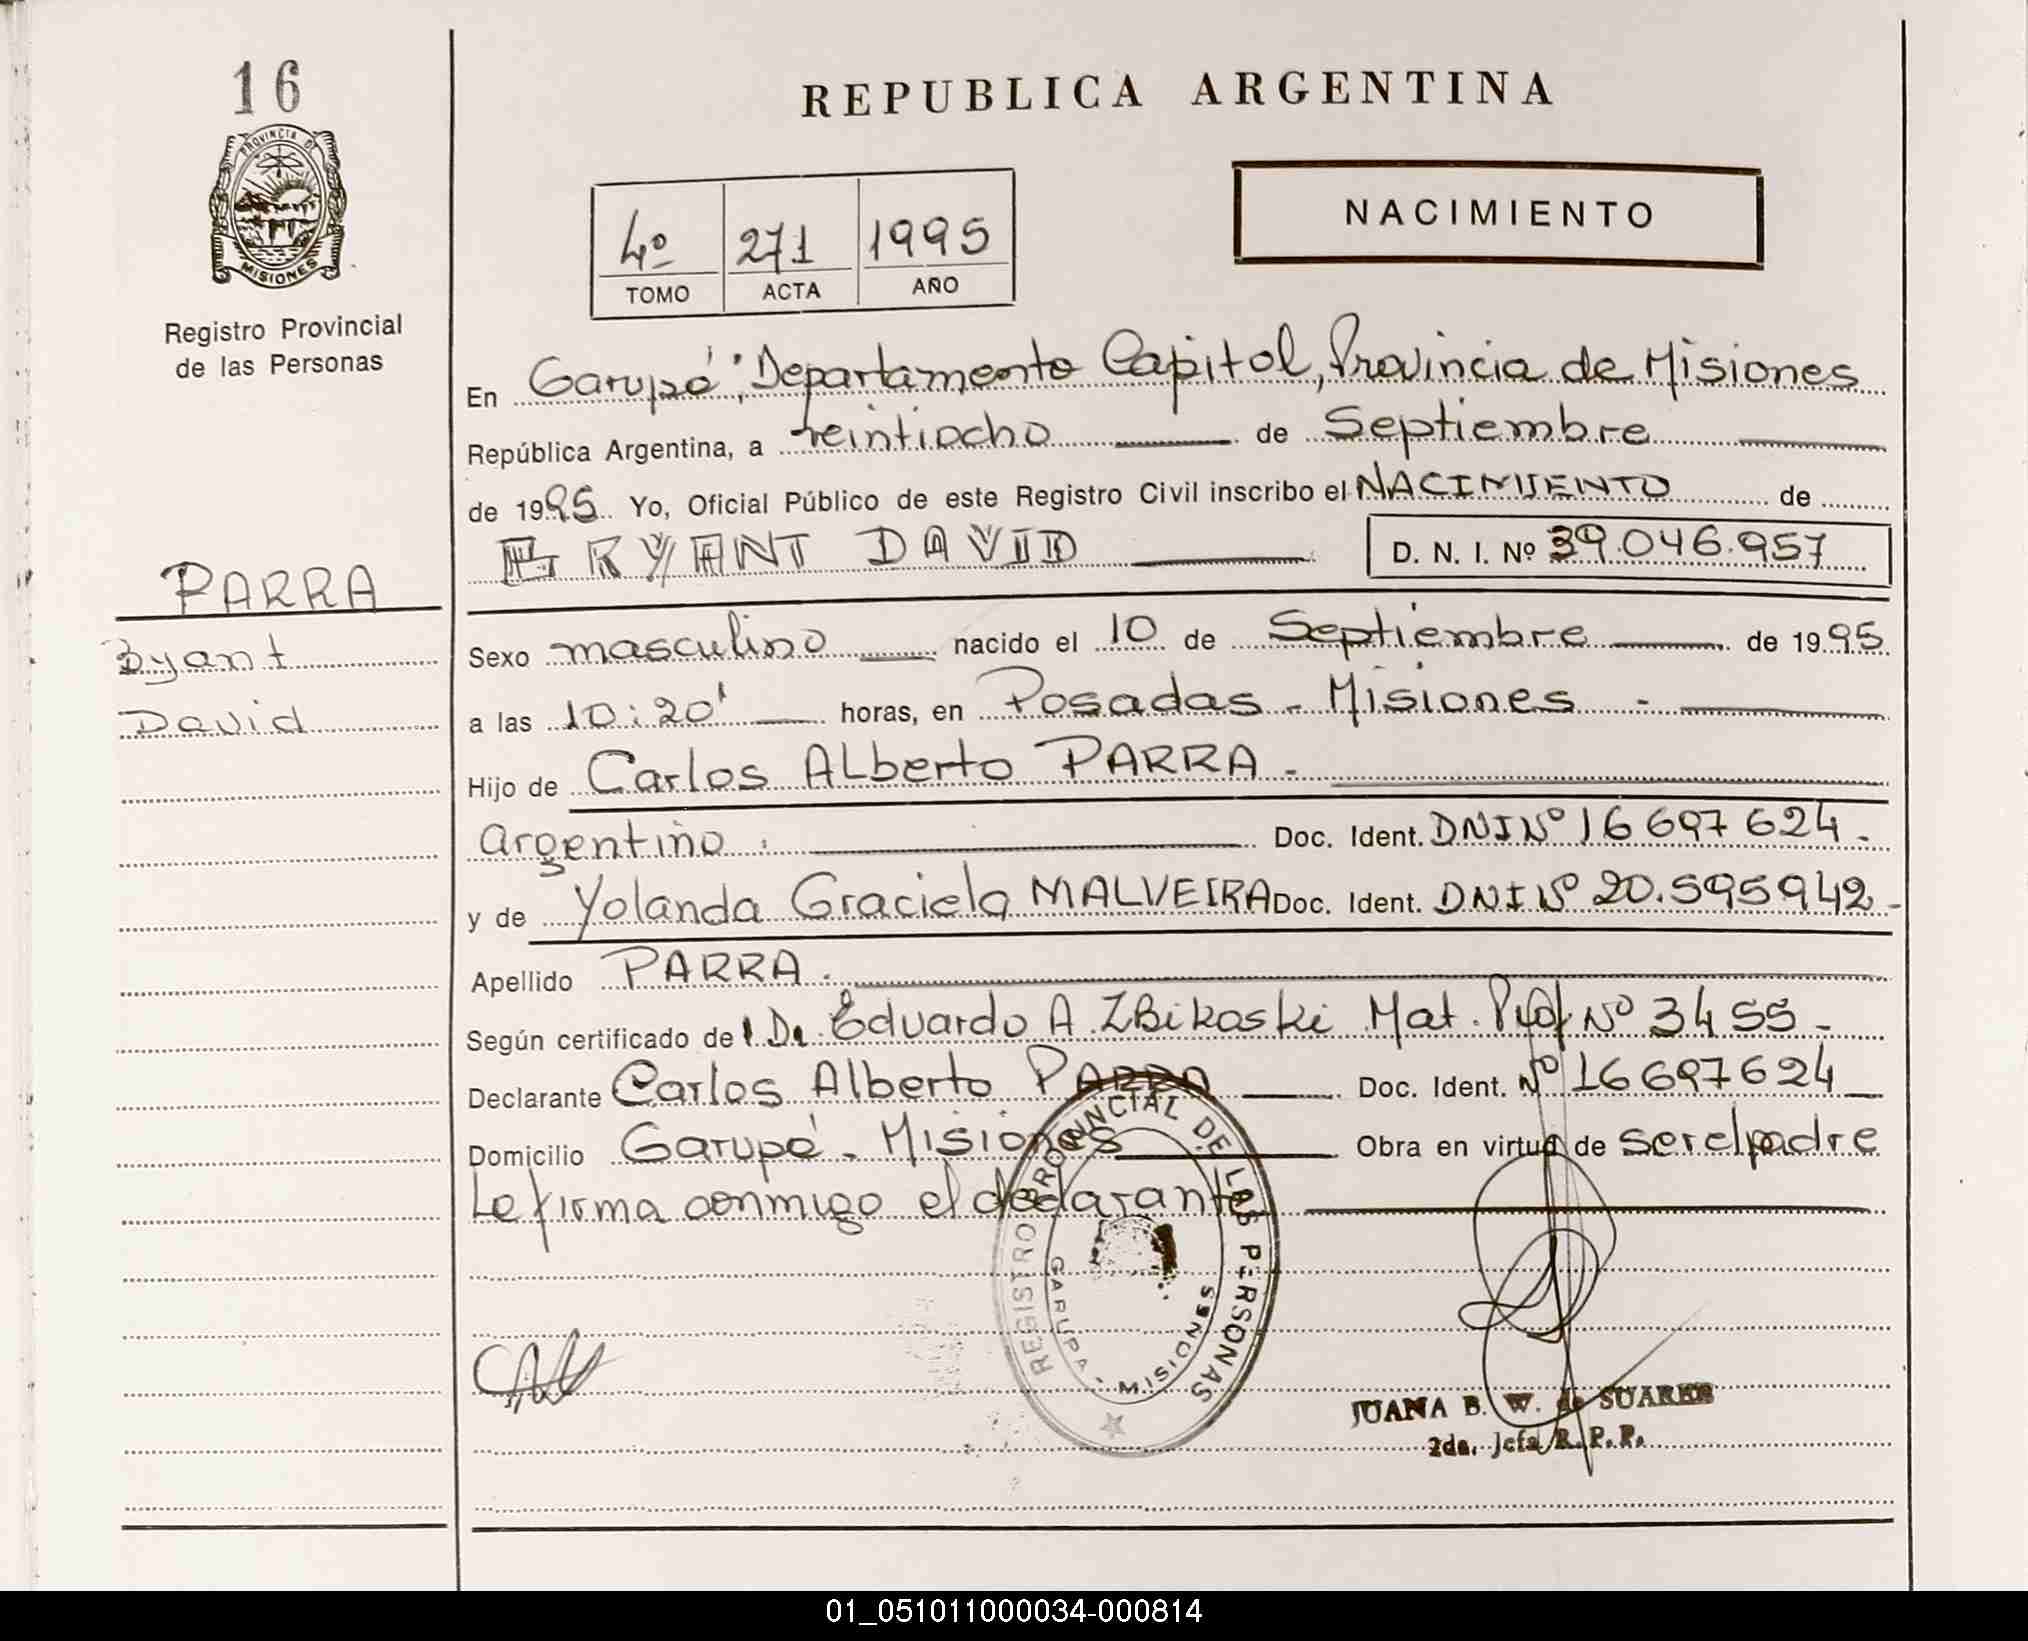 16
PROVINCIA DE
MISIONES
Registro Provincial
de las Personas
REPUBLICA ARGENTINA
4º 271 1995
TOMO ACTA AÑO
NACIMIENTO
En Garupá, Departamento Capital, Provincia de Misiones
República Argentina, a veintiocho de Septiembre
de 1995. Yo, Oficial Público de este Registro Civil inscribo el NACIMIENTO de
BRYANT DAVID D. N. I. Nº 39.046.957
PARRA
Byant
David
Sexo masculino nacido el 10 de Septiembre de 1995
a las 10:20' horas, en Posadas - Misiones -
Hijo de Carlos Alberto PARRA -
argentino. Doc. Ident. DNI Nº 16 697 624 -
y de Yolanda Graciela MALVEIRA Doc. Ident. DNI Nº 20.595942 -
Apellido PARRA.
Según certificado de l Dr. Eduardo A. ZBikoski Mat. Prof Nº 3455 -
Declarante Carlos Alberto PARRA Doc. Ident. Nº 16697624
Domicilio Garupá - Misiones Obra en virtud de ser el padre
Le firma conmigo el declarante
REGISTRO PROVINCIAL DE LAS PERSONAS
GARUPA - MISIONES
JUANA B. W. de SUARES
2da. Jefa R. P. P.
01_051011000034-000814